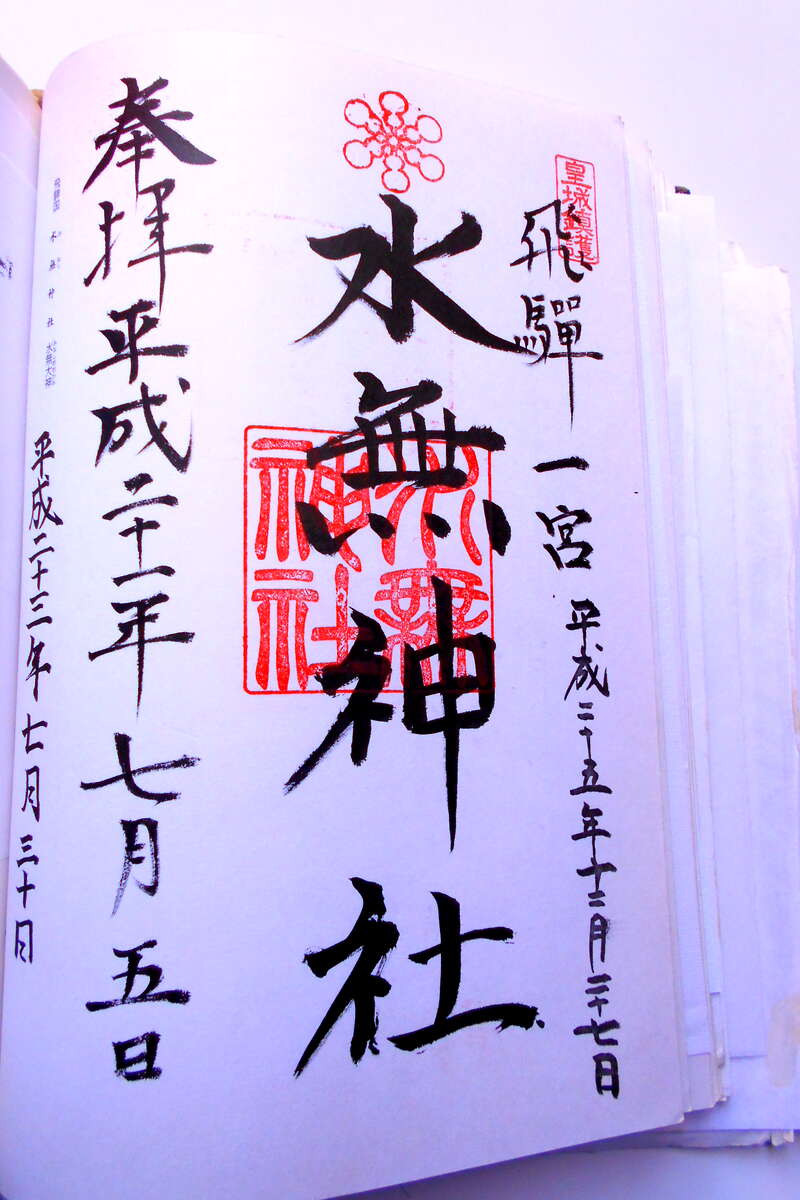 皇城鎮護
飛驒一宮
平成二十五年十二月二十七日
水無神社
水無神社
奉拝
平成二十一年七月五日
飛騨国 水無神社
平成二十三年七月三十日